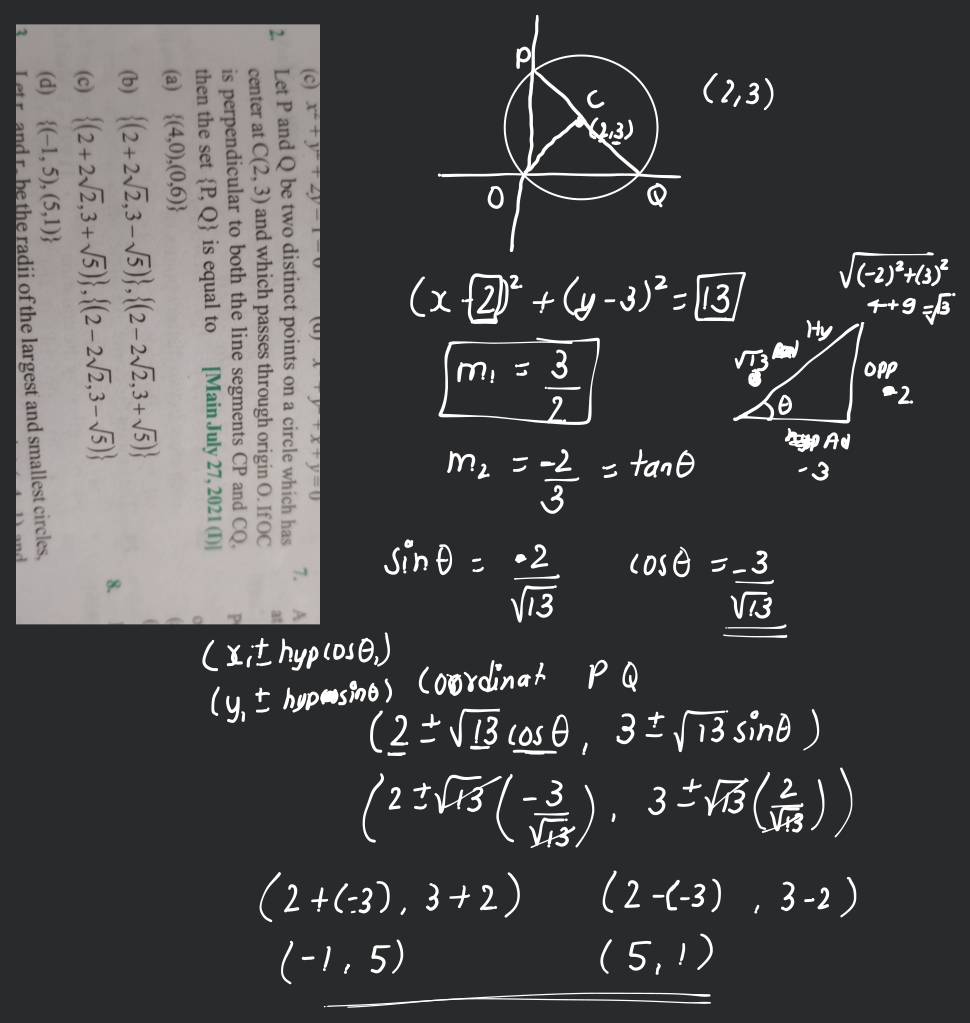 (c) x² + y² + 2y – 1 = 0
2. Let P and Q be two distinct points on a circle which has
center at C(2, 3) and which passes through origin O. If OC
is perpendicular to both the line segments CP and CQ,
then the set {P, Q} is equal to [Main July 27, 2021 (I)]
(a) {(4,0),(0,6)}
(b) {(2+2√2,3−√5)},{(2−2√2,3+√5)}
(c) {(2+2√2,3+√5)},{(2−2√2,3−√5)}
(d) {(−1, 5),(5,1)}
be the radii of the largest and smallest circles,
7. A
8.
P
C
(2,3)
O
Q
(2,3)
(x-2)² + (y-3)² = 13
m₁ = 3/2
m₂ = -2/3 = tanθ
√(-2)²+(3)²
4+9=√13
Hy
√13
opp
-2
θ
Ad
-3
sinθ = 2/√13 cosθ = -3/√13
(x₁± hyp cosθ,)
(y₁ ± hyp sinθ) Coordinat P Q
(2 ± √13 cosθ, 3 ± √13 sinθ)
(2 ± √13 (-3/√13), 3 ± √13 (2/√13))
(2+(-3), 3+2) (2-(-3), 3-2)
(-1, 5) (5, 1)